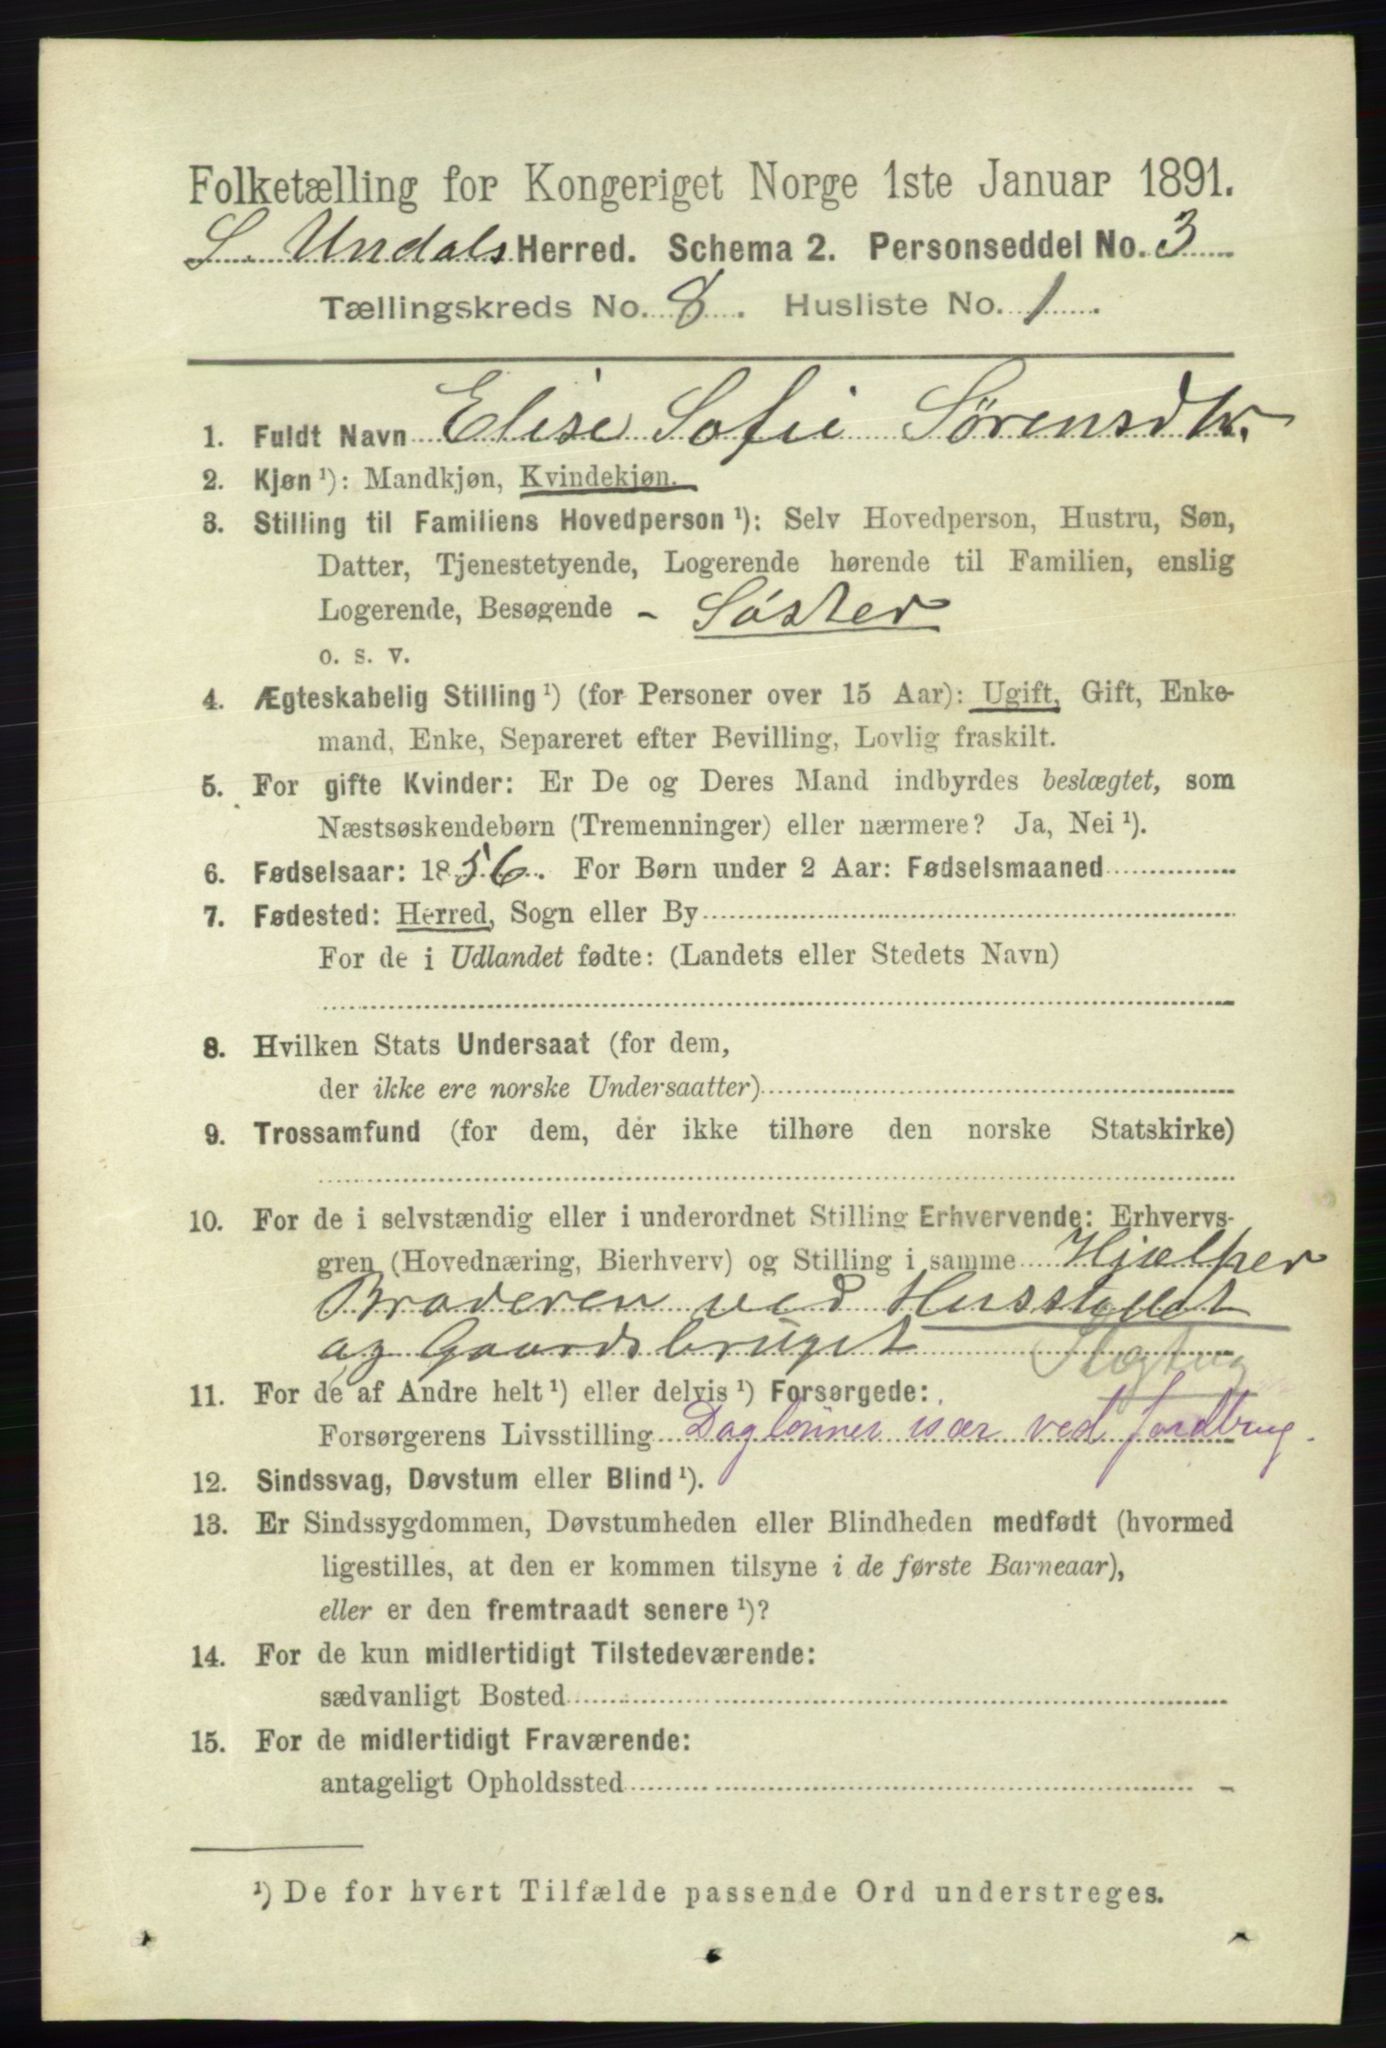 Folketælling for Kongeriget Norge 1ste Januar 1891.
S. Undals Herred. Schema 2. Personseddel No. 3
Tællingskreds No. 8. Husliste No. 1.
1. Fuldt Navn Elise Sofie Sørensdtr.
2. Kjøn ¹): Mandkjøn, Kvindekjøn.
3. Stilling til Familiens Hovedperson ¹): Selv Hovedperson, Hustru, Søn,
Datter, Tjenestetyende, Logerende hørende til Familien, enslig
Logerende, Besøgende - Søster
o. s. v.
4. Ægteskabelig Stilling ¹) (for Personer over 15 Aar): Ugift, Gift, Enke-
mand, Enke, Separeret efter Bevilling, Lovlig fraskilt.
5. For gifte Kvinder: Er De og Deres Mand indbyrdes beslægtet, som
Næstsøskendebørn (Tremenninger) eller nærmere? Ja, Nei ¹).
6. Fødselsaar: 1856. For Børn under 2 Aar: Fødselsmaaned
7. Fødested: Herred, Sogn eller By
For de i Udlandet fødte: (Landets eller Stedets Navn)
8. Hvilken Stats Undersaat (for dem,
der ikke ere norske Undersaatter)
9. Trossamfund (for dem, der ikke tilhøre den norske Statskirke)
10. For de i selvstændig eller i underordnet Stilling Erhvervende: Erhvervs-
gren (Hovednæring, Bierhverv) og Stilling i samme Hjælper
Broderen ved Husstellet
og Gaardsbruget
11. For de af Andre helt ¹) eller delvis ¹) Forsørgede:
Forsørgerens Livsstilling Daglønner især ved Jordbrug.
12. Sindssvag, Døvstum eller Blind ¹).
13. Er Sindssygdommen, Døvstumheden eller Blindheden medfødt (hvormed
ligestilles, at den er kommen tilsyne i de første Barneaar),
eller er den fremtraadt senere ¹)?
14. For de kun midlertidigt Tilstedeværende:
sædvanligt Bosted
15. For de midlertidigt Fraværende:
antageligt Opholdssted
¹) De for hvert Tilfælde passende Ord understreges.